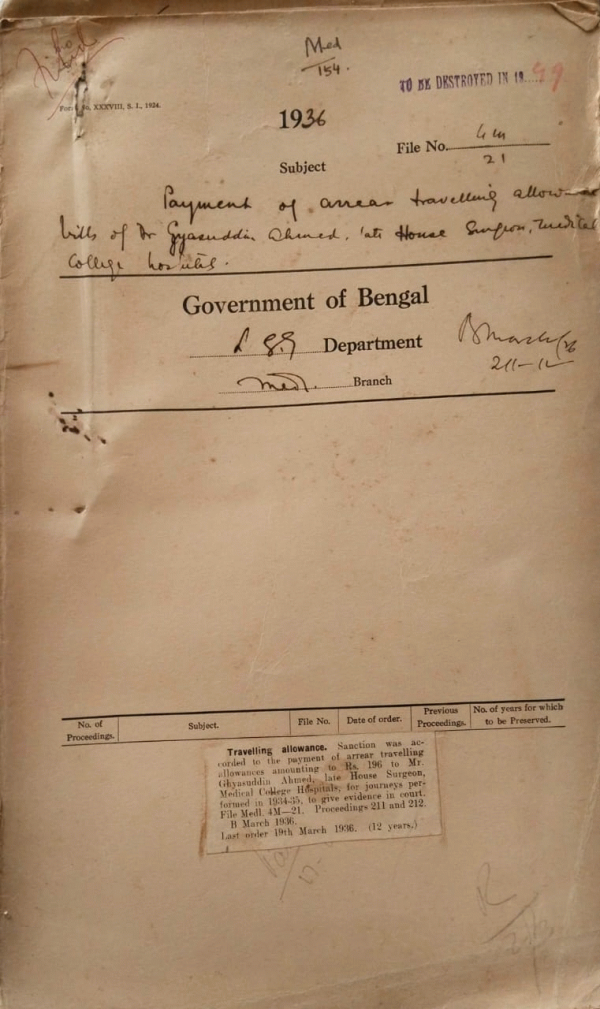 Med
154.
TO BE DESTROYED IN 19.....49
No. XXXVIII, S. I., 1924.
1936
File No. 4m
21
Subject
Payment of arrear travelling
bills of Dr Gyasuddin Ahmed, late House Surgeon, Medical
College hospital.
Government of Bengal
Department
B March/36
211-12
Medl. Branch
No. of Proceedings.
Subject.
File No.
Date of order.
Previous Proceedings.
No. of years for which to be Preserved.
Travelling allowance. Sanction was ac-
corded to the payment of arrear travelling
allowances amounting to Rs. 196 to Mr.
Ghyasuddin Ahmed, late House Surgeon,
Medical College Hospitals, for journeys per-
formed in 1934-35, to give evidence in court.
File Medl. 4M—21. Proceedings 211 and 212.
B March 1936.
Last order 19th March 1936. (12 years.)